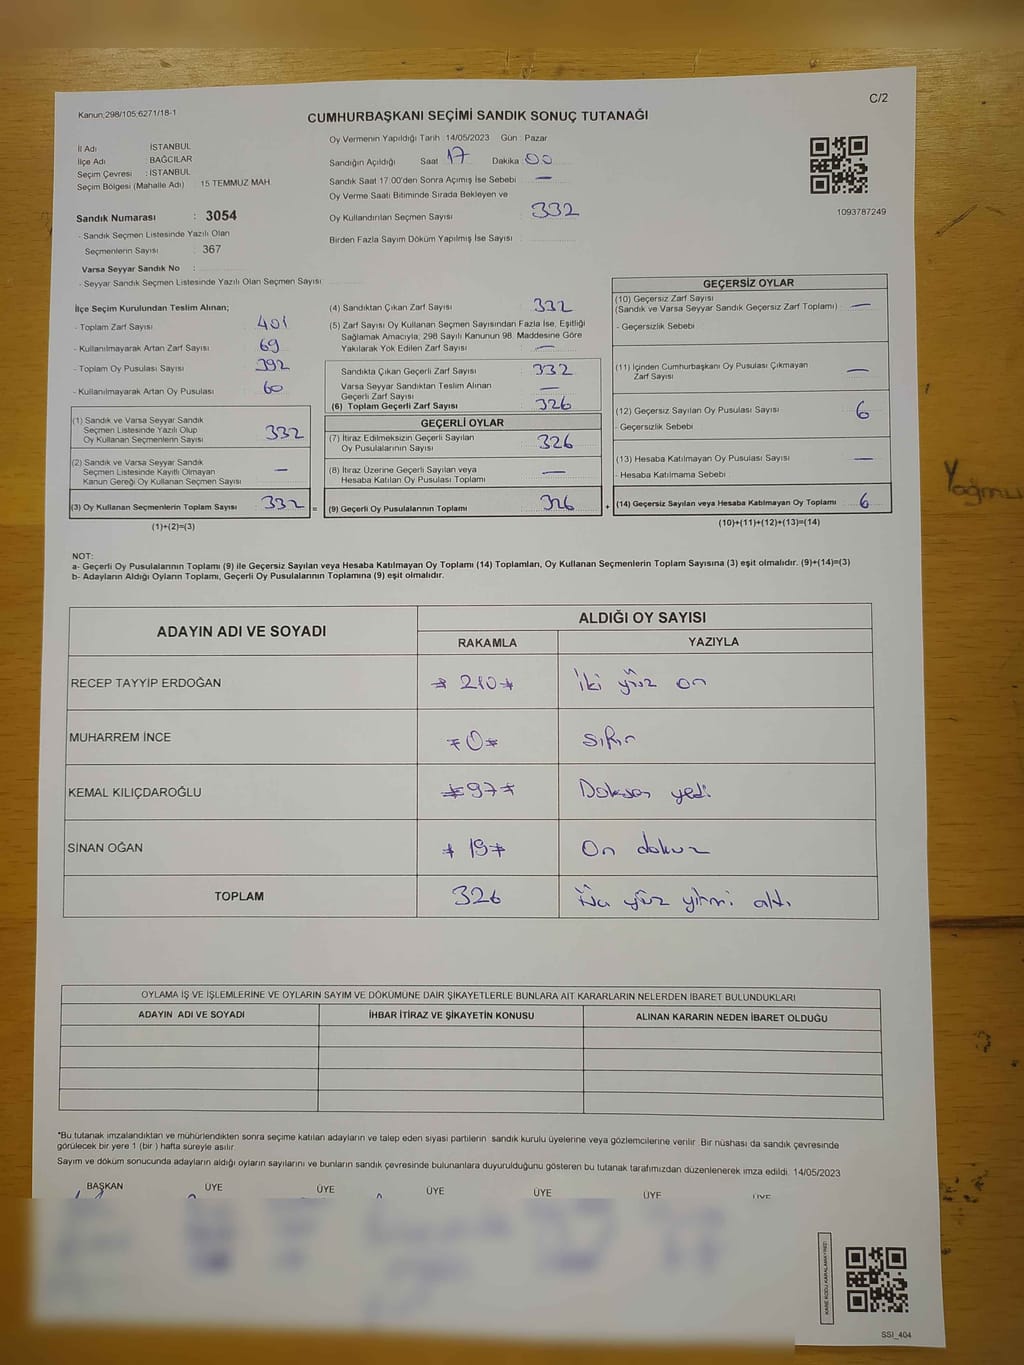 Kanun:298/105:6271/18-1
C/2
CUMHURBAŞKANI SEÇİMİ SANDIK SONUÇ TUTANAĞI
İl Adı : İSTANBUL
İlçe Adı : BAĞCILAR
Seçim Çevresi : İSTANBUL
Seçim Bölgesi (Mahalle Adı) 15 TEMMUZ MAH.
Sandık Numarası : 3054
- Sandık Seçmen Listesinde Yazılı Olan
Seçmenlerin Sayısı : 367
Varsa Seyyar Sandık No :
- Seyyar Sandık Seçmen Listesinde Yazılı Olan Seçmen Sayısı:
Oy Vermenin Yapıldığı Tarih : 14/05/2023 Gün : Pazar
Sandığın Açıldığı Saat 17 Dakika 00
Sandık Saat 17:00'den Sonra Açımış İse Sebebi : —
Oy Verme Saati Bitiminde Sırada Bekleyen ve
Oy Kullandırılan Seçmen Sayısı : 332
Birden Fazla Sayım Döküm Yapılmış İse Sayısı :
1093787249
İlçe Seçim Kurulundan Teslim Alınan;
- Toplam Zarf Sayısı : 401
- Kullanılmayarak Artan Zarf Sayısı : 69
- Toplam Oy Pusulası Sayısı : 392
- Kullanılmayarak Artan Oy Pusulası : 60
(1) Sandık ve Varsa Seyyar Sandık
Seçmen Listesinde Yazılı Olup
Oy Kullanan Seçmenlerin Sayısı : 332
(2) Sandık ve Varsa Seyyar Sandık
Seçmen Listesinde Kayıtlı Olmayan
Kanun Gereği Oy Kullanan Seçmen Sayısı : —
(3) Oy Kullanan Seçmenlerin Toplam Sayısı : 332
(1)+(2)=(3)
(4) Sandıktan Çıkan Zarf Sayısı : 332
(5) Zarf Sayısı Oy Kullanan Seçmen Sayısından Fazla İse, Eşitliği
Sağlamak Amacıyla; 298 Sayılı Kanunun 98. Maddesine Göre
Yakılarak Yok Edilen Zarf Sayısı : —
Sandıkta Çıkan Geçerli Zarf Sayısı : 332
Varsa Seyyar Sandıktan Teslim Alınan
Geçerli Zarf Sayısı : —
(6) Toplam Geçerli Zarf Sayısı : 326
GEÇERLİ OYLAR
(7) İtiraz Edilmeksizin Geçerli Sayılan
Oy Pusulalarının Sayısı : 326
(8) İtiraz Üzerine Geçerli Sayılan veya
Hesaba Katılan Oy Pusulası Toplamı : —
= (9) Geçerli Oy Pusulalarının Toplamı : 326
GEÇERSİZ OYLAR
(10) Geçersiz Zarf Sayısı
(Sandık ve Varsa Seyyar Sandık Geçersiz Zarf Toplamı) : —
- Geçersizlik Sebebi
(11) İçinden Cumhurbaşkanı Oy Pusulası Çıkmayan
Zarf Sayısı : —
(12) Geçersiz Sayılan Oy Pusulası Sayısı : 6
- Geçersizlik Sebebi
(13) Hesaba Katılmayan Oy Pusulası Sayısı : —
- Hesaba Katılmama Sebebi
+ (14) Geçersiz Sayılan veya Hesaba Katılmayan Oy Toplamı : 6
(10)+(11)+(12)+(13)=(14)
NOT:
a- Geçerli Oy Pusulalarının Toplamı (9) ile Geçersiz Sayılan veya Hesaba Katılmayan Oy Toplamı (14) Toplamları, Oy Kullanan Seçmenlerin Toplam Sayısına (3) eşit olmalıdır. (9)+(14)=(3)
b- Adayların Aldığı Oyların Toplamı, Geçerli Oy Pusulalarının Toplamına (9) eşit olmalıdır.
ADAYIN ADI VE SOYADI
ALDIĞI OY SAYISI
RAKAMLA YAZIYLA
RECEP TAYYİP ERDOĞAN * 210 * iki yüz on
MUHARREM İNCE * 0 * sıfır
KEMAL KILIÇDAROĞLU * 97 * Doksan yedi
SİNAN OĞAN * 19 * On dokuz
TOPLAM 326 Üç yüz yirmi altı
OYLAMA İŞ VE İŞLEMLERİNE VE OYLARIN SAYIM VE DÖKÜMÜNE DAİR ŞİKAYETLERLE BUNLARA AİT KARARLARIN NELERDEN İBARET BULUNDUKLARI
ADAYIN ADI VE SOYADI İHBAR İTİRAZ VE ŞİKAYETİN KONUSU ALINAN KARARIN NEDEN İBARET OLDUĞU
*Bu tutanak imzalandıktan ve mühürlendikten sonra seçime katılan adayların ve talep eden siyasi partilerin sandık kurulu üyelerine veya gözlemcilerine verilir. Bir nüshası da sandık çevresinde
görülecek bir yere 1 (bir ) hafta süreyle asılır.
Sayım ve döküm sonucunda adayların aldığı oyların sayılarını ve bunların sandık çevresinde bulunanlara duyurulduğunu gösteren bu tutanak tarafımızdan düzenlenerek imza edildi. 14/05/2023
BAŞKAN ÜYE ÜYE ÜYE ÜYE ÜYE ÜYE
KARE KODU KARALAMAYINIZ!
SSI_404